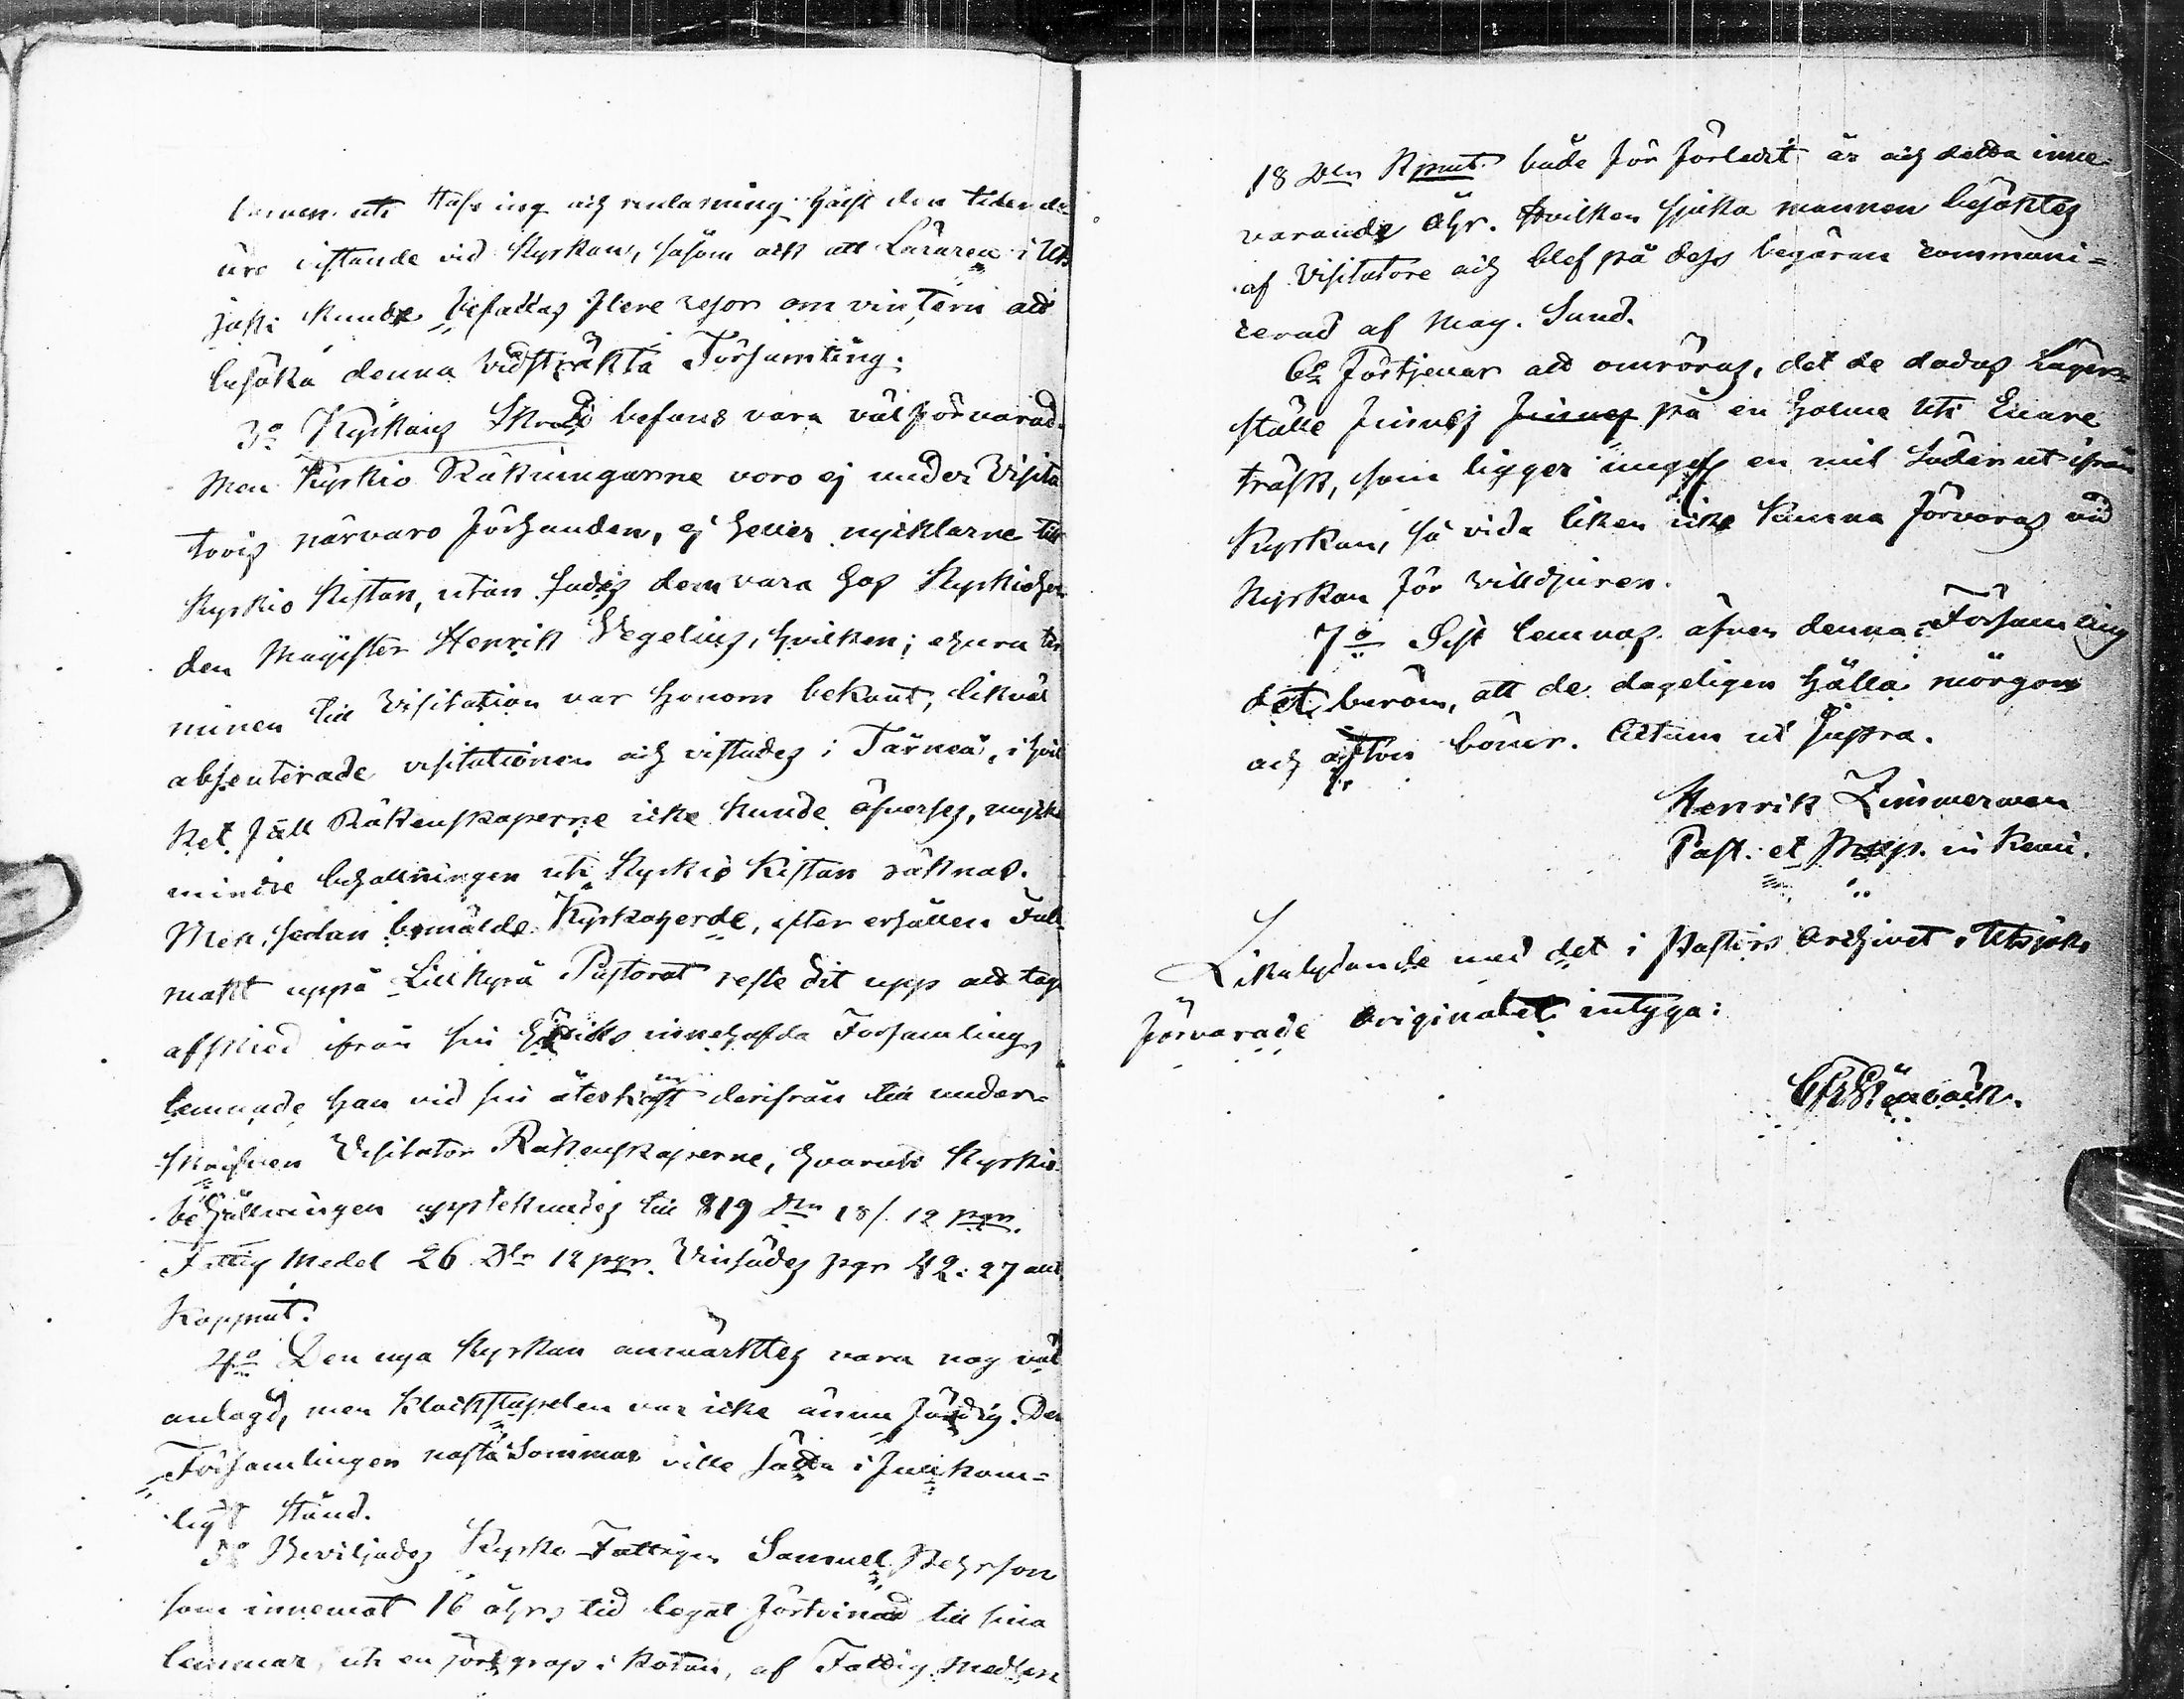 barnen uti stafning och renlärning hälst den tiden de
äro vistande vid Kyrkan, såsom ock att Läraren i Uts
joki kunde befattas flere resor om vintern att
besöka denna vidsträkta Församling.
3o Kyrkans Skrud befans vara väl förvarad.
Men Kyrkio Räkningarne voro ej under Visita
toris närvaro förhanden, ej heller nycklarne till
Kyrkio Kistan, utan sades dem vara hos Kyrkioher
den Magister Henrik Wegelius, hvilken; ehuru ter
minen till Visitation var honom bekant, likväl
absenterade visitationen och vistades i Torneå, i hvil
ket fall Räkenskaperne icke kunde öfverses, mycket
mindre behållningen uti Kyrkio Kistan räknas.
Men sedan bemälde Kyrkoherde, efter erhållen Full
makt uppå Lillkyrö Pastorat reste dit upp att taga
afsked ifrån sin hittils innehafda Församling,
lemnade han vid sin återkomst derifrån till under-
skrifven Visitator Räkenskaperne, hvaruti Kyrkio
behållningen upptecknades till 819 Dlr 18/. 12 pgr.
Fattig Medel 26 Dlr 12 pgr. Vinsädes pgr 42: 27 allt
Kopp mt.
4o Den nya Kyrkan anmärktes vara nog väl
anlagd, men Klockstapelen var icke ännu färdig. Den
Församlingen nästa Sommar ville sätta i fullkom-
ligt stånd.
5o Beviljades Kyrko Fattigen Samuel Pehrson
som innemot 16 åhrs tid legat förtvinad till sina
lemmar, uti en jord grop i Kotan, af Fattig Medlen
18 Dlr Kpmt. både för förledit år och detta inne-
varande åhr. Hvilken sjuka mannen besöktes
af Visitatore och blef på dess begäran communi-
cerad af Mag. Sund.
6o Förtjenar att omröras, det de dödas Läger-
ställe finnes på en holme uti Enare
träsk, som ligger ungef. en mil Söder ut ifrån
Kyrkan, så vida liken icke kunna förvaras vid
Kyrkan för villdjuren.
7o Sist lemnas äfven denna Församling
det beröm, att de dageligen hålla mörgon
och afton böner. Actum ut supra.
Henrik Zimmerman
Past. et Præp. in Kemi.
Likalydande med det i Pastors Archivet i Utsjoki
förvarade Originalet intyga: